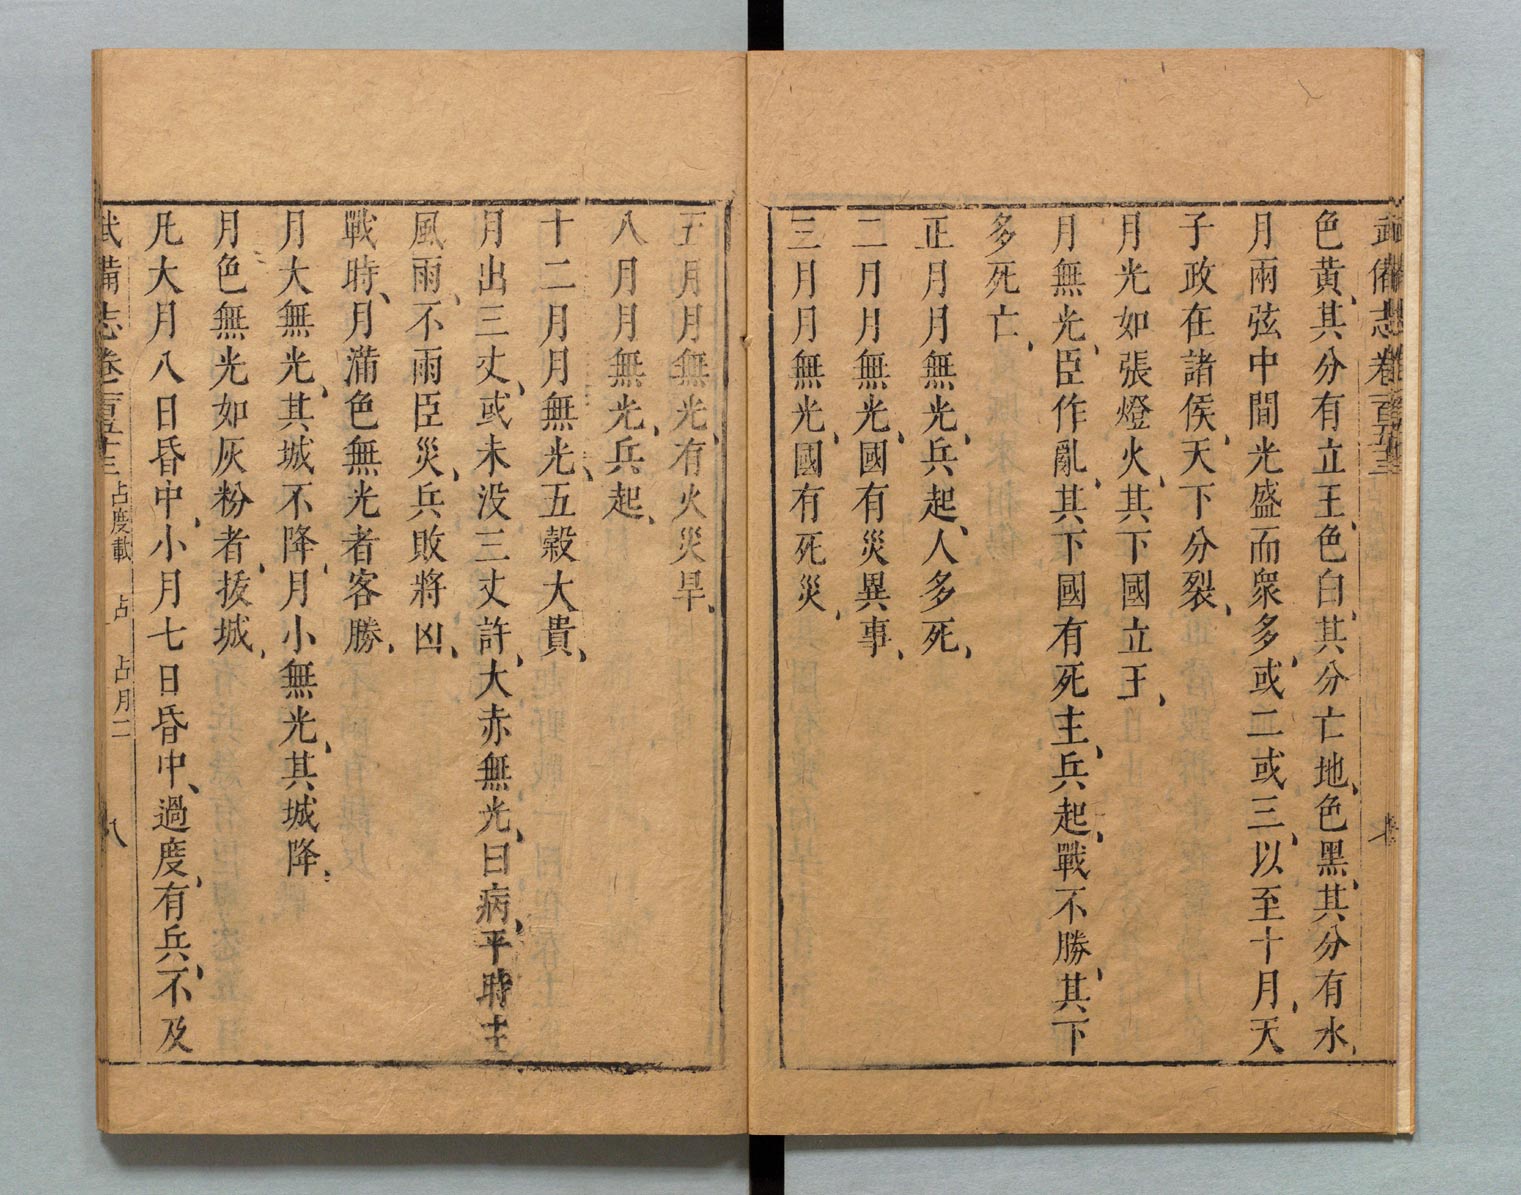 武備志卷一百五十三
色黃、其分有立王、色白、其分亡地、色黑、其分有水、
月兩弦中間光盛而衆多、或二或三、以至十月、天
子政在諸侯、天下分裂、
月光如張燈火、其下國立王、
月無光、臣作亂、其下國有死主、兵起、戰不勝、其下
多死亡、
正月月無光、兵起、人多死、
二月月無光、國有災異事、
三月月無光、國有死災、
五月月無光、有火災旱、
八月月無光、兵起、
十二月月無光、五穀大貴、
月出三丈、或未没三丈許、大赤無光、曰病、平時主
風雨、不雨臣災、兵敗將凶、
戰時、月滿色無光者客勝、
月大無光、其城不降、月小無光、其城降、
月色無光如灰粉者、拔城、
凡大月八日昏中、小月七日昏中、過度、有兵、不及
武備志卷一百五十三 占度載 占 占月二 八